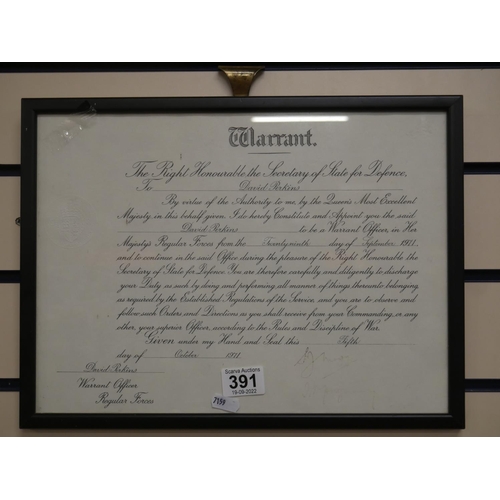 Warrant.
The Right Honourable the Secretary of State for Defence,
To David Perkins
By virtue of the Authority to me, by the Queen's Most Excellent
Majesty in this behalf given, I do hereby Constitute and Appoint you the said
David Perkins to be a Warrant Officer in Her
Majesty's Regular Forces from the Twentyninth day of September 1971
and to continue in the said Office during the pleasure of the Right Honourable the
Secretary of State for Defence. You are therefore carefully and diligently to discharge
your Duty as such by doing and performing all manner of things thereunto belonging
as required by the Established Regulations of the Service, and you are to observe and
follow such Orders and Directions as you shall receive from your Commanding, or any
other, your superior Officer, according to the Rules and Discipline of War.
Given under my Hand and Seal this Fifth
day of October 1971
David Perkins
Warrant Officer
Regular Forces
Scarva Auctions
391
19-09-2022